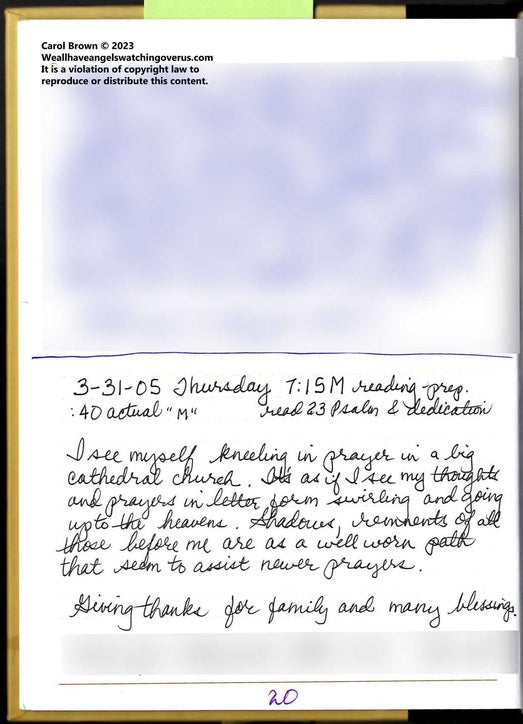 Carol Brown © 2023
Weallhaveangelswatchingoverus.com
It is a violation of copyright law to
reproduce or distribute this content.
3-31-05 Thursday 7:15M reading-prep.
:40 actual "M" read 23 Psalm & dedication
I see myself kneeling in prayer in a big
cathedral church. It's as if I see my thoughts
and prayers in letter form swirling and going
up to the heavens. Shadows, remnents of all
those before me are as a well worn path
that seem to assist newer prayers.
Giving thanks for family and many blessings.
20